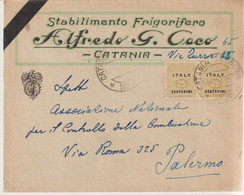 Stabilimento Frigorifero
Alfredo G. Coco 65
- CATANIA - Via Curia 55
ITALY ITALY
CENTESIMI CENTESIMI
Spett
Associazione Nationale
per il Controllo della Combustione
Via Roma 325
Palermo